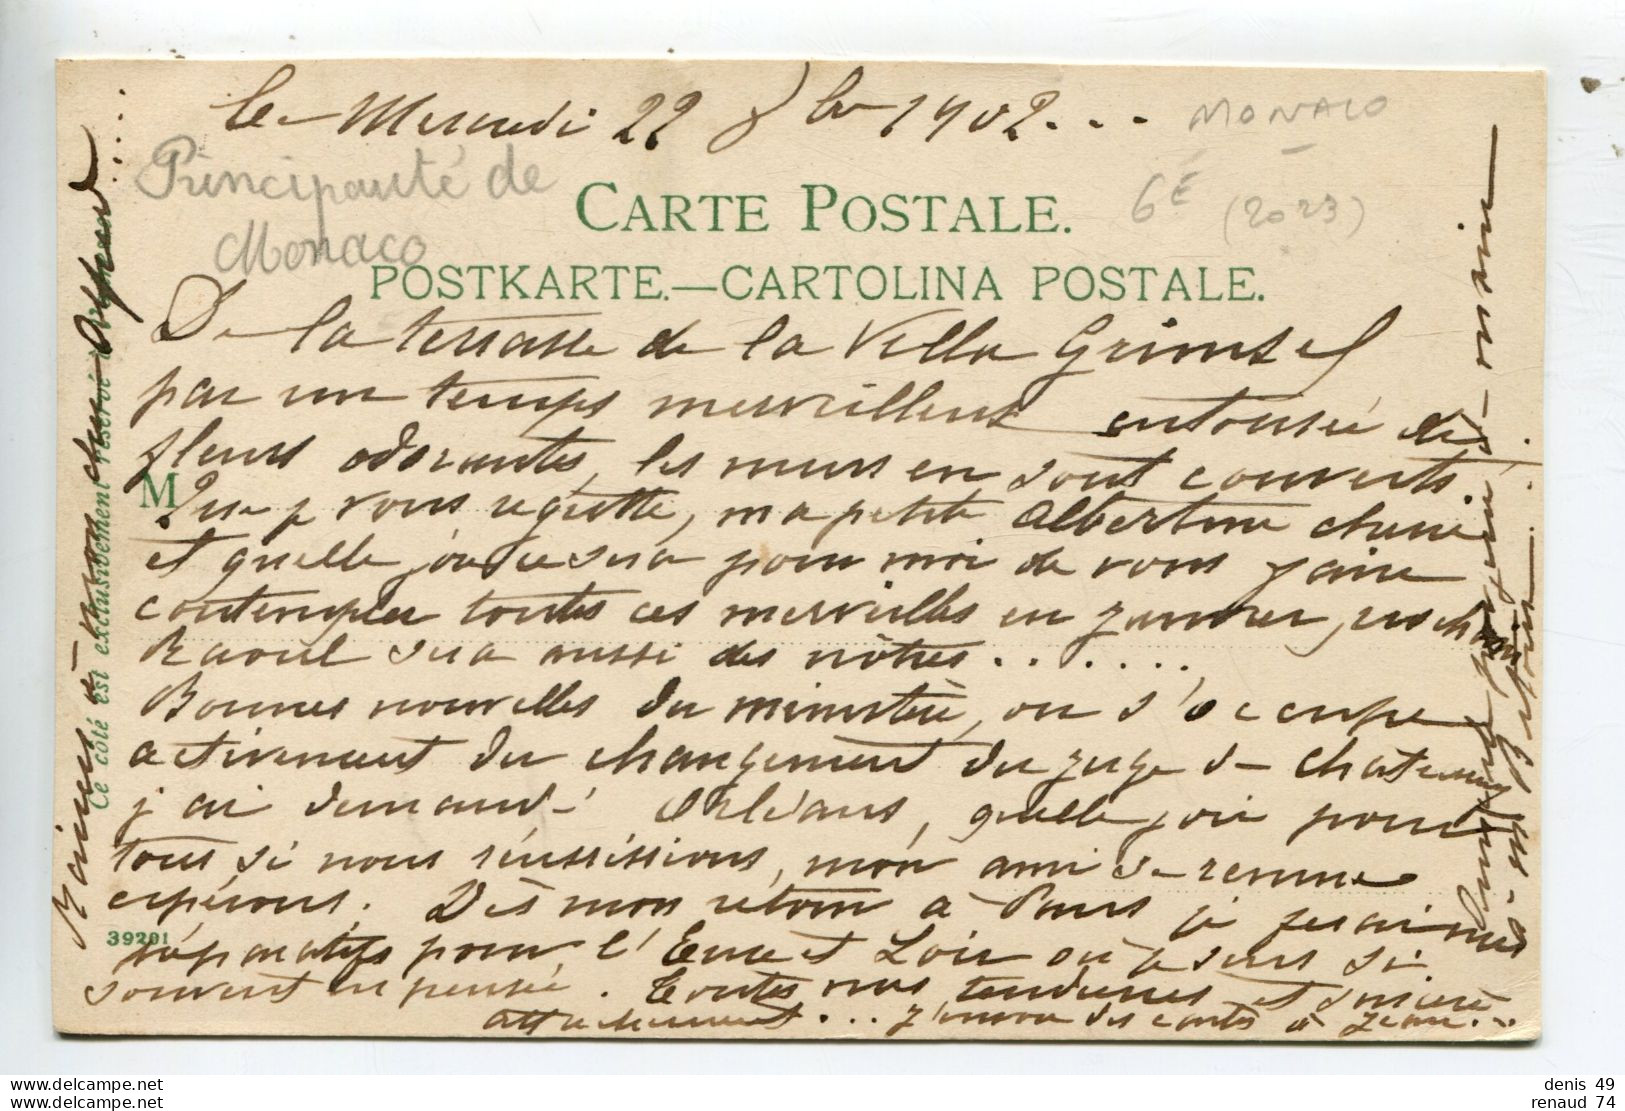 Le Mercredi 22 8bre 1902...
MONACO
Principauté de
Monaco
6€ (2023)
CARTE POSTALE.
POSTKARTE.—CARTOLINA POSTALE.
De la terrasse de la Villa Grimsel
par un temps merveilleux entourée de
fleurs odorantes, les murs en sont couverts.
M
Que je vous regrette, ma petite Albertine chérie
et quelle joie ce sera pour moi de vous faire
contempler toutes ces merveilles en janvier, mon
Raoul sera aussi des nôtres......
Bonnes nouvelles du ministère, on s'occupe
activement du changement du juge de
j'ai demandé Orléans, quelle joie pour
tous si nous réussissions, mon ami de Rennes
espérons. Dès mon retour à Paris je ferai mes
39201
préparatifs pour l'Eure et Loir où je suis si
souvent en pensée. Toutes nos tendresses et sincère
attachement... J'envoie des cartes à Jean...
Ce côté est exclusivement réservé à l'adresse
denis 49
www.delcampe.net
renaud 74
Mar_Mar